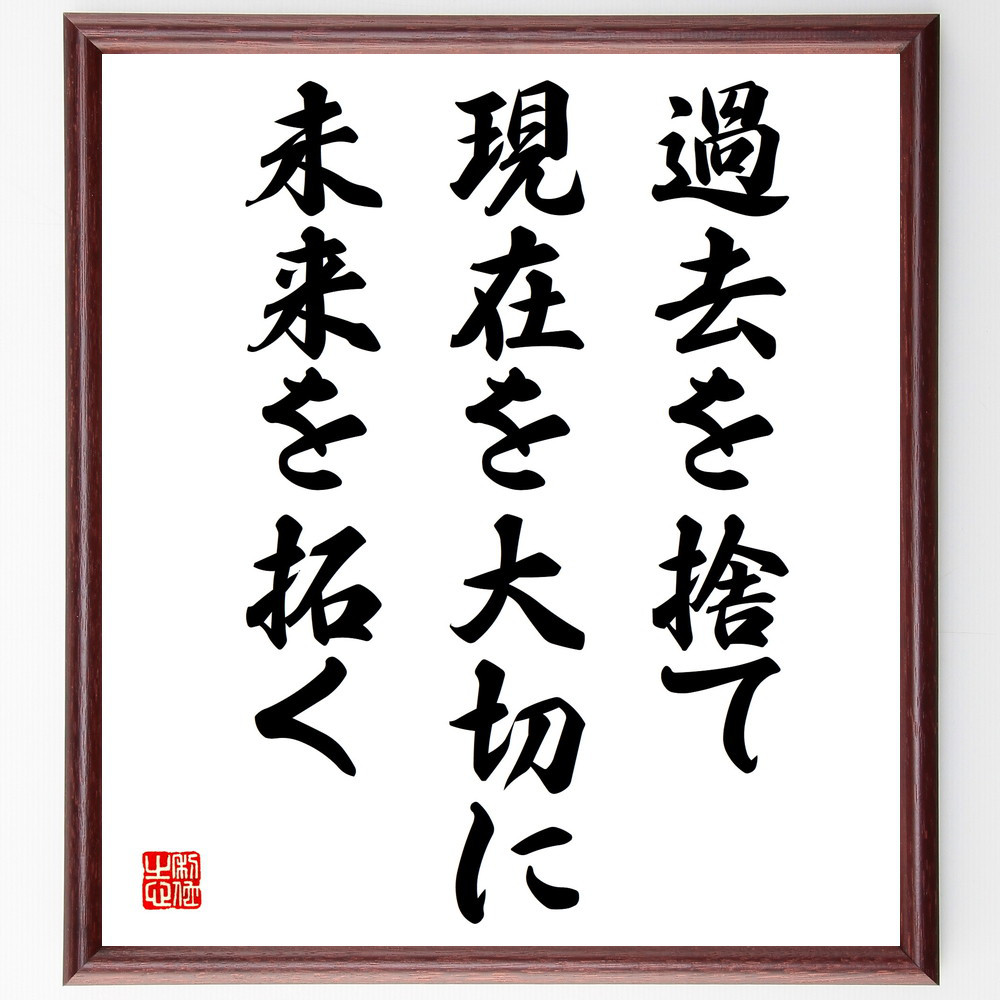 過去を捨て
現在を大切に
未来を拓く